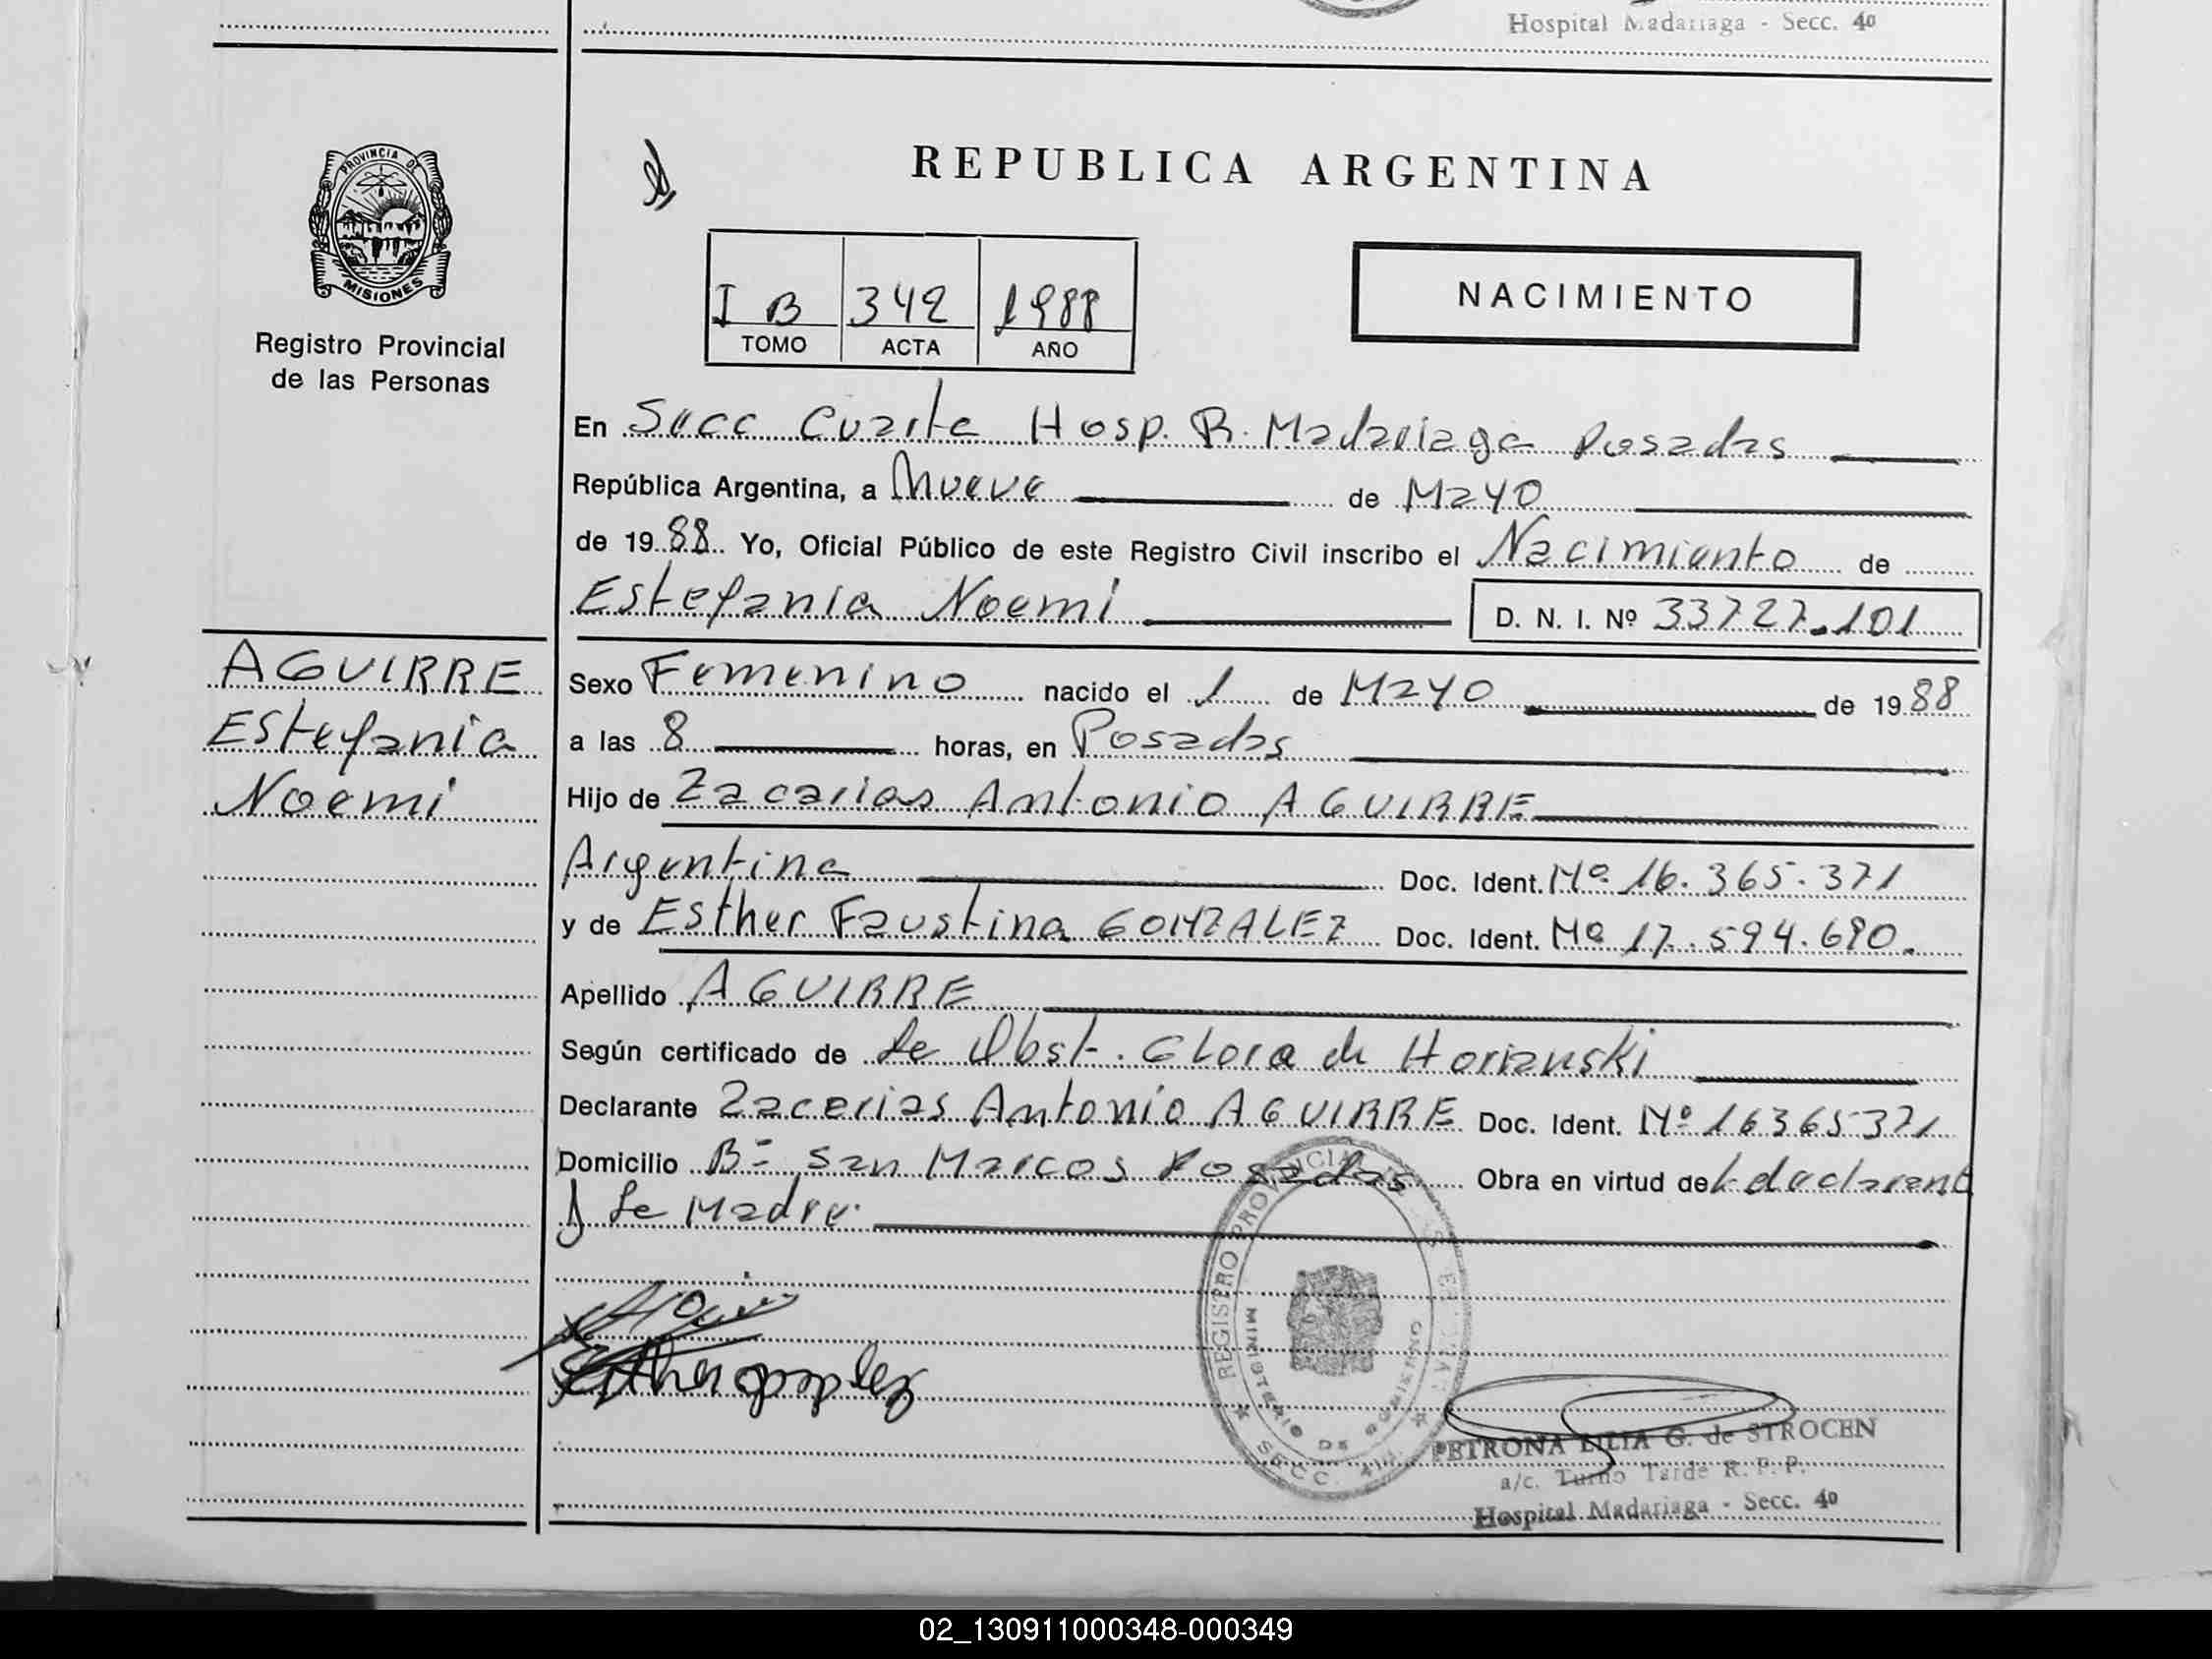 Hospital Madariaga - Secc. 4º
PROVINCIA DE
MISIONES
Registro Provincial
de las Personas
REPUBLICA ARGENTINA
I B 342 1988
TOMO ACTA AÑO
NACIMIENTO
En Secc Cuarta Hosp. R. Madariaga Posadas
República Argentina, a Nueve de Mayo
de 1988 Yo, Oficial Público de este Registro Civil inscribo el Nacimiento de
Estefania Noemi D. N. I. Nº 33727.101
AGUIRRE
Estefania
Noemi
Sexo Femenino nacido el 1 de Mayo de 1988
a las 8 horas, en Posadas
Hijo de Zacarias Antonio AGUIRRE
Argentina Doc. Ident. Nº 16.365.371
y de Esther Faustina GONZALEZ Doc. Ident. Nº 17.594.690.
Apellido AGUIRRE
Según certificado de la Obst. Clora de Horianski
Declarante Zacarias Antonio AGUIRRE Doc. Ident. Nº 16365371
Domicilio Bº San Marcos Posadas Obra en virtud de
la Madre.
Esther
REGISTRO PROVINCIAL DE LAS PERSONAS
MINISTERIO DE GOBIERNO
SECC. 4ta.
PETRONA LILIA G. de STROCEN
a/c. Turno Tarde R. P. P.
Hospital Madariaga - Secc. 4º
02_130911000348-000349